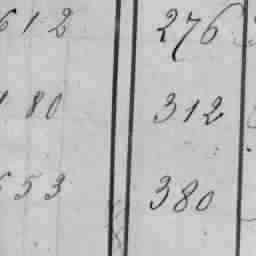 612 276
180 312
653 380